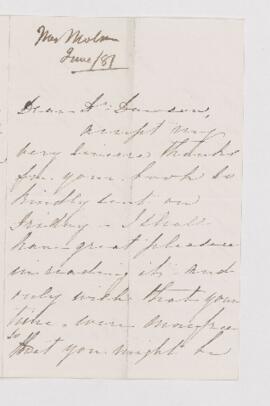 Mrs Molson
June/81
Dear Dr. Dawson,
accept my
very sincere thanks
for your book so
kindly sent on
Friday - I shall
have great pleasure
in reading it and
only wish that your
time were more free
so that you might be